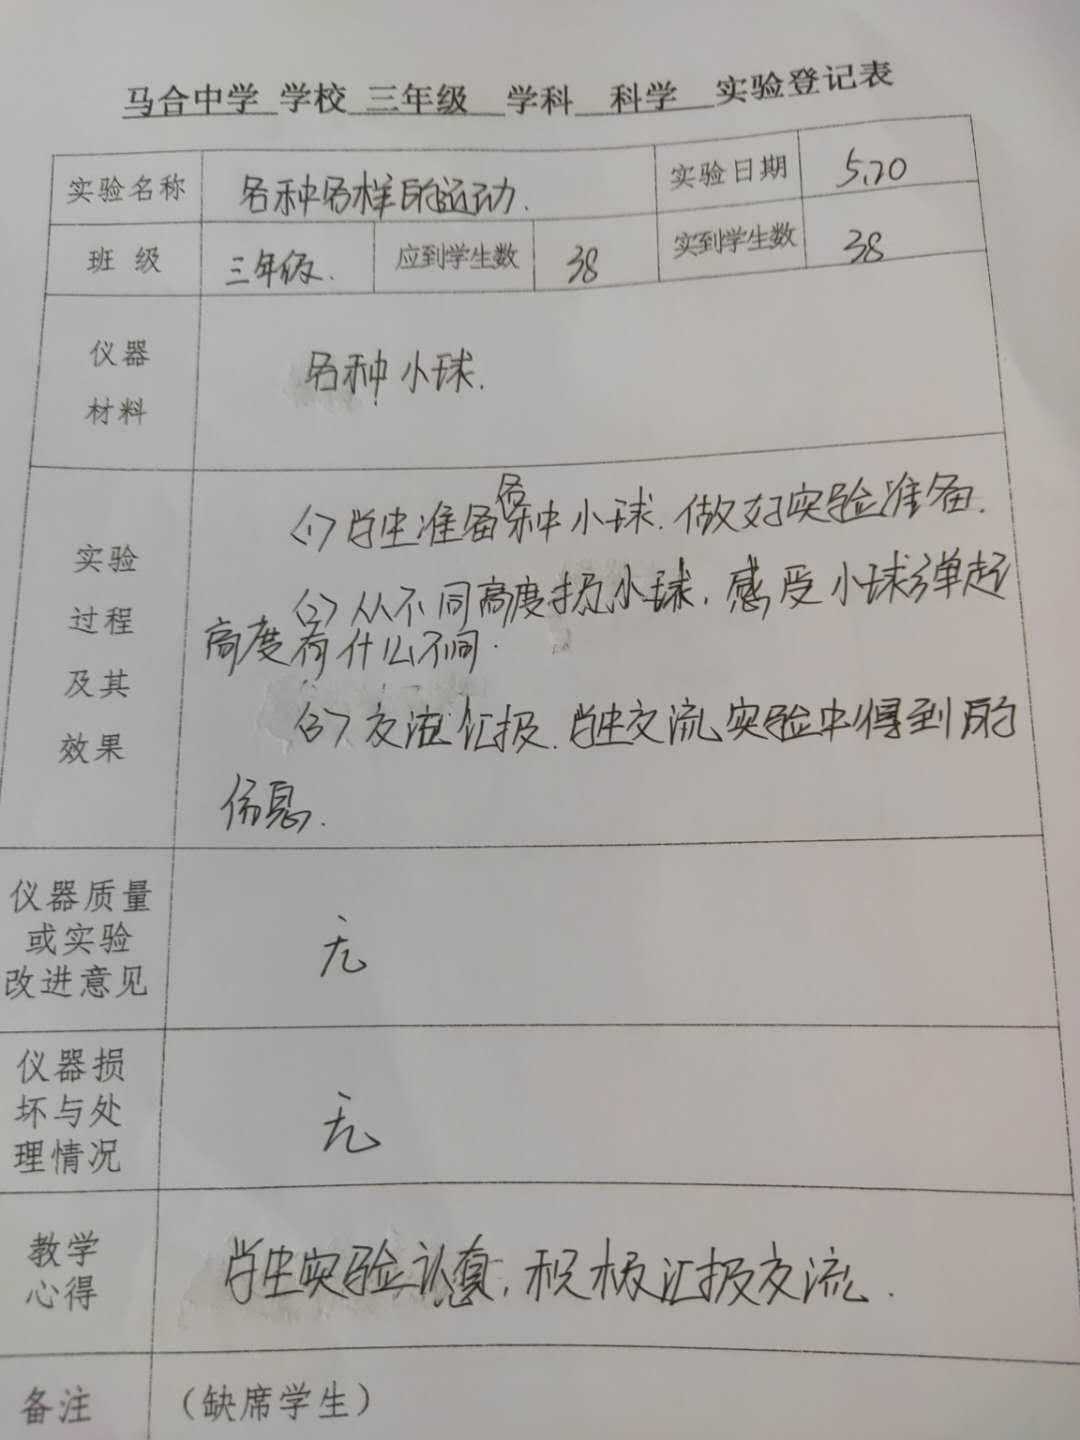 马合中学 学校 三年级 学科 科学 实验登记表
实验名称 各种各样的运动. 实验日期 5.20
班 级 三年级. 应到学生数 38 实到学生数 38
仪器
材料
各种小球.
实验
过程
及其
效果
(1)学生准备各种小球.做好实验准备.
(2)从不同高度扔小球.感受小球弹起
高度有什么不同.
(3)交流汇报.学生交流实验中得到的
信息.
仪器质量
或实验
改进意见
无
仪器损
坏与处
理情况
无
教学
心得
学生实验认真,积极汇报交流.
备注 (缺席学生)